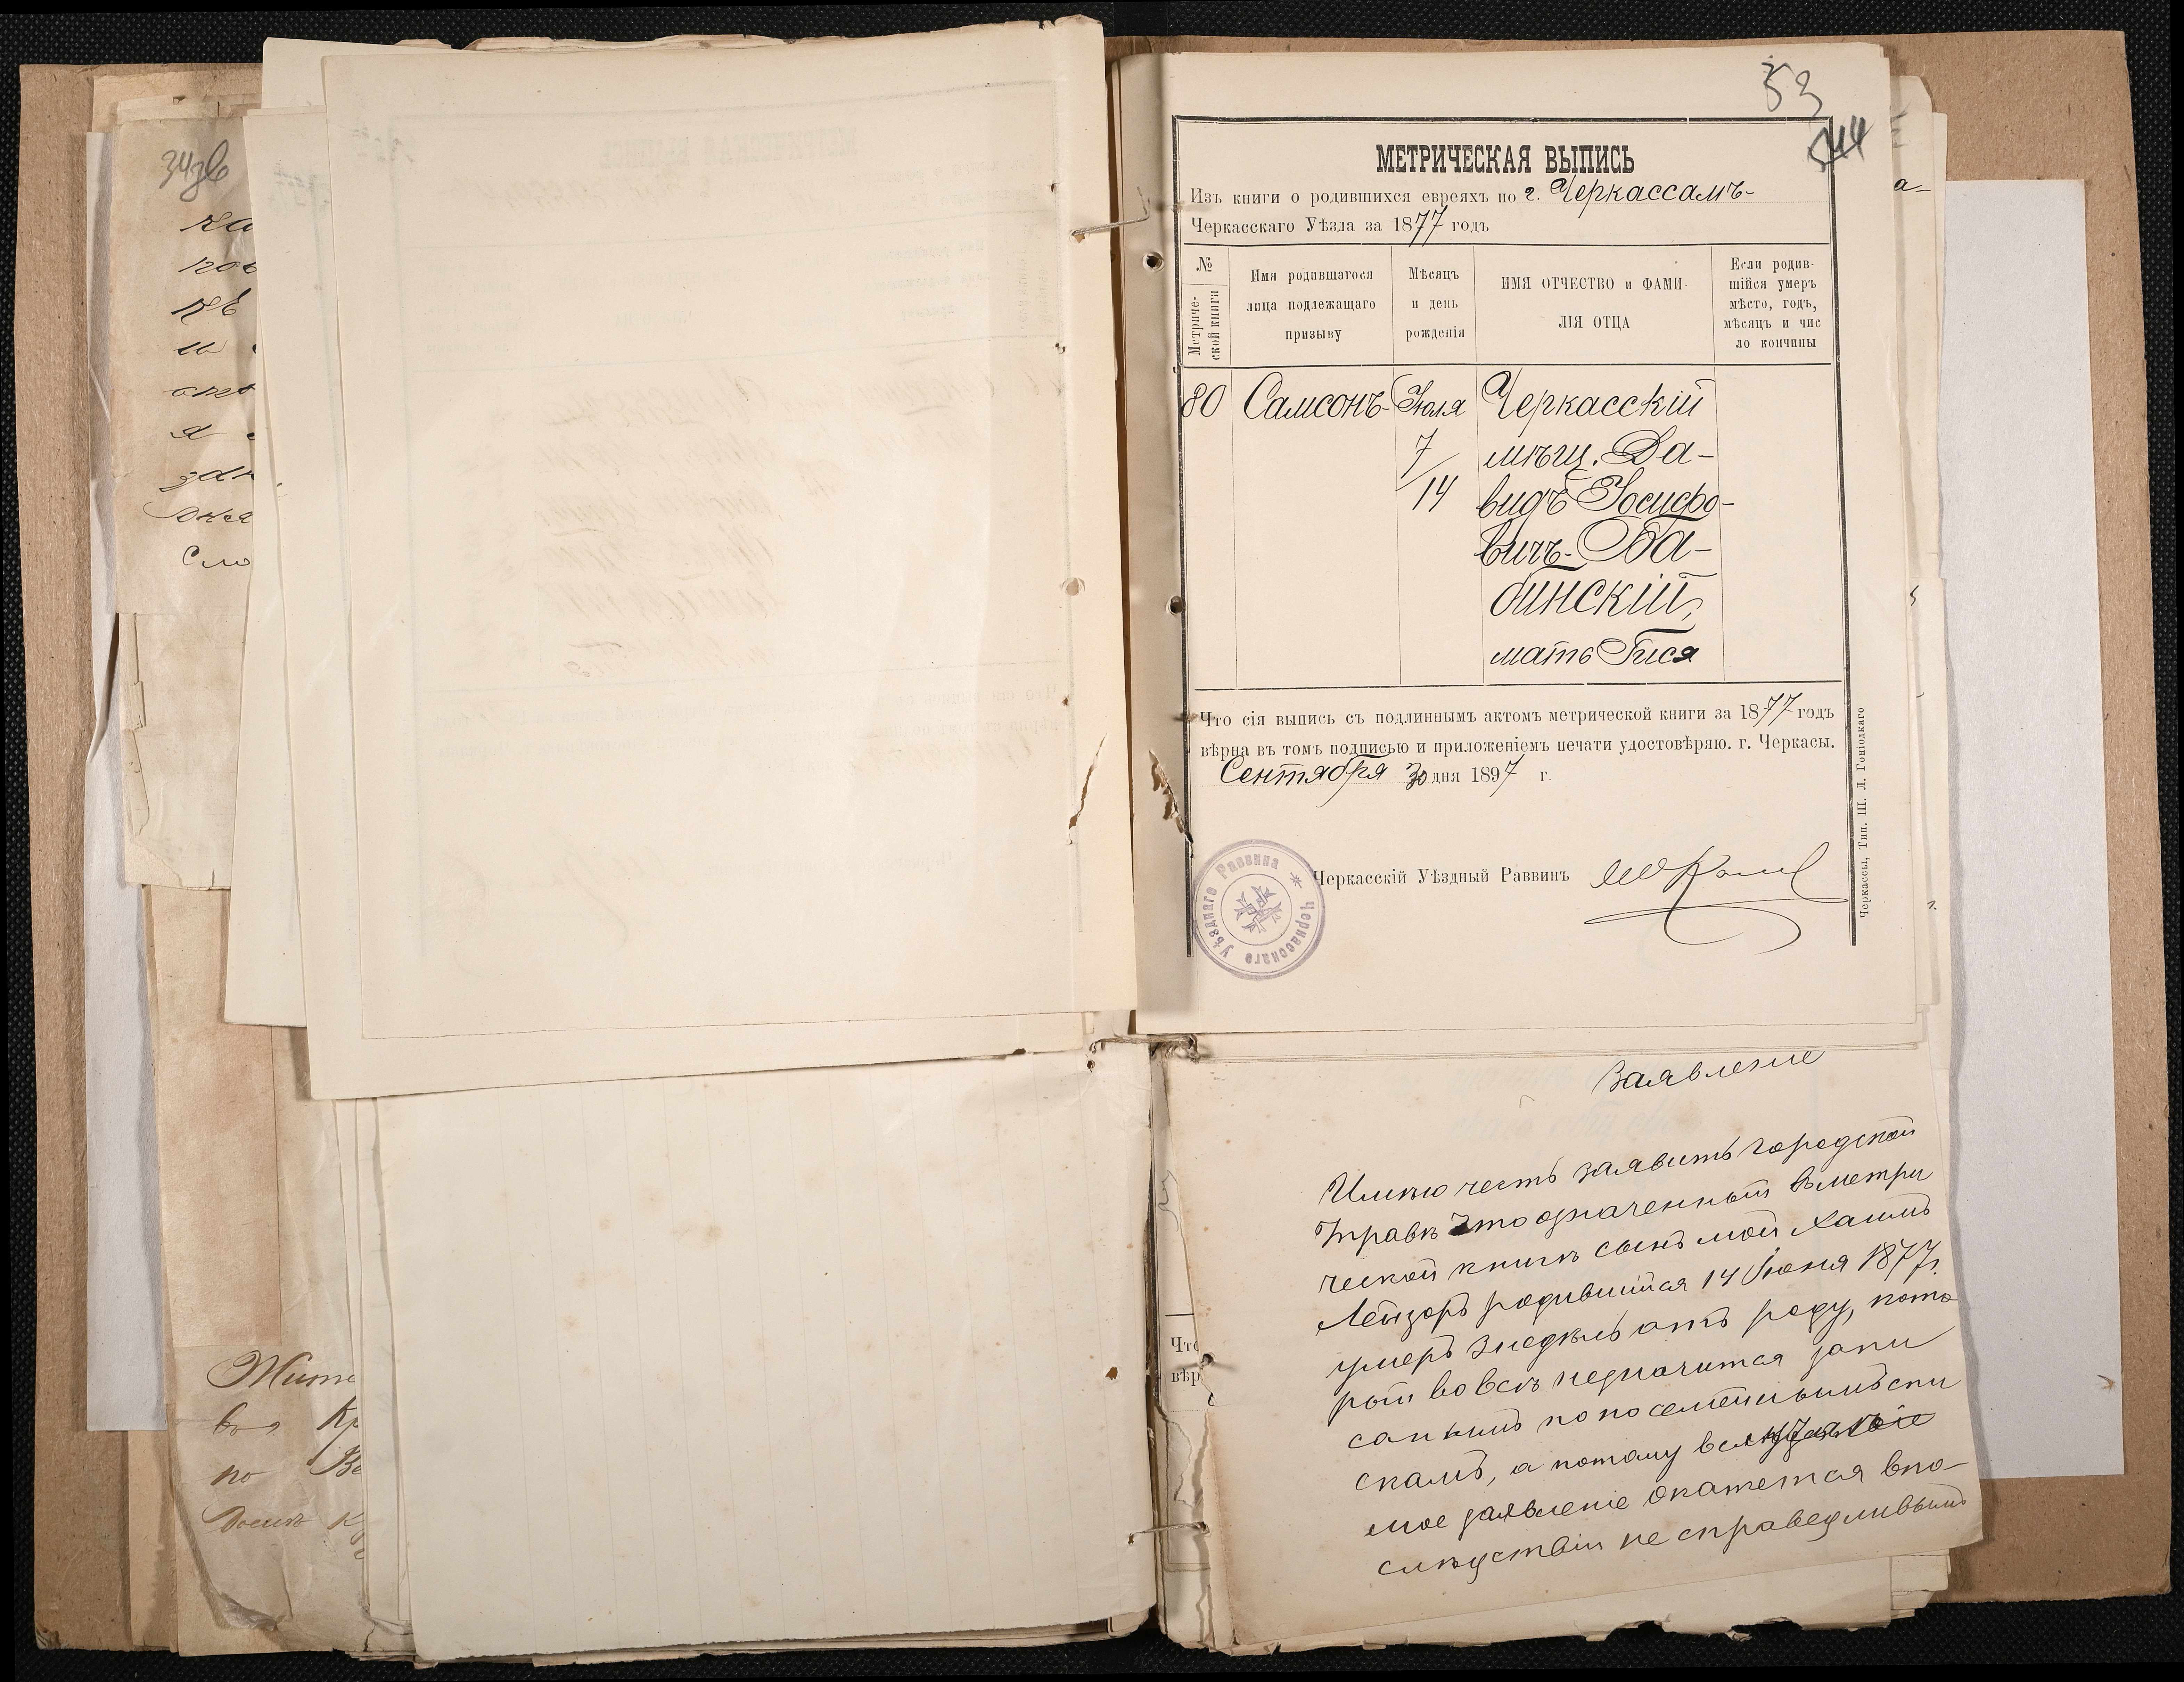 ка
пов
кѣ
и
опев
я
зан
Сло
Жите
во Кр
по Во
53
МЕТРИЧЕСКАЯ ВЫПИСЬ
Изъ книги о родившихся евреяхъ по г. Черкассамъ
Черкасскаго Уѣзда за 1877 годъ
№
Метриче-
ской книги
Имя родившагося
лица подлежащаго
призыву
Мѣсяцъ
и день
рожденія
ИМЯ ОТЧЕСТВО и ФАМИ-
ЛІЯ ОТЦА
Если родив-
шійся умеръ
мѣсто, годъ,
мѣсяцъ и чис
ло кончины
80
Самсонъ
Іюля
7/14
Черкасскій
мѣщ. Да-
видъ Іосифо-
вичъ Ба-
бинскій,
мать Гися
Что сія выпись съ подлиннымъ актомъ метрической книги за 1877 годъ
вѣрна въ томъ подписью и приложеніемъ печати удостовѣряю. г. Черкасы.
Сентября 30 дня 1897 г.
Черкасскій Уѣздный Раввинъ
Черкасскаго Уѣзднаго Раввина
Черкассы, Тип. Ш. Л. Гоніодкаго
Заявление
Имѣю честь заявить городской
Управѣ что означенный вметри
ческой книгѣ сынъ мой Хаимъ
Лейзоръ родившийся 14 Июня 1877 г.
умеръ недѣль отъ роду, кото
рый вовсѣ незначится запи
санымъ по посемейнымъ спи
скамъ, а потому
мое заявленіе окажется впо-
слѣдствіи не справедливымъ
Что
вѣр